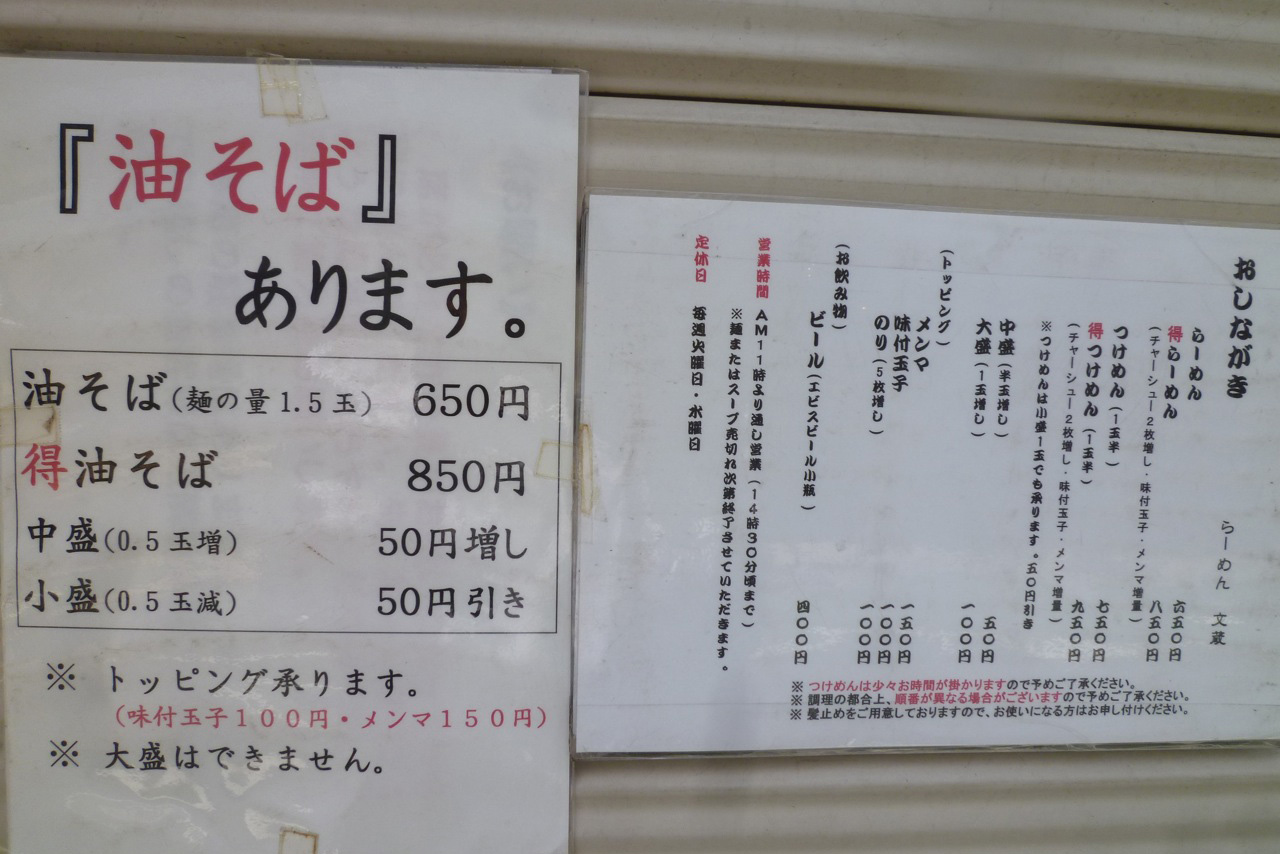 『油そば』
あります。
油そば(麺の量1.5玉) 650円
得油そば 850円
中盛(0.5玉増) 50円増し
小盛(0.5玉減) 50円引き
※ トッピング承ります。
(味付玉子100円・メンマ150円)
※ 大盛はできません。
おしながき
らーめん 文蔵
らーめん 六五〇円
得らーめん 八五〇円
(チャーシュー2枚増し・味付玉子・メンマ増量)
つけめん(1玉半) 七五〇円
得つけめん(1玉半) 九五〇円
(チャーシュー2枚増し・味付玉子・メンマ増量)
※つけめんは小盛1玉でも承ります。五〇円引き
中盛(半玉増し) 五〇円
大盛(1玉増し) 一〇〇円
(トッピング)
メンマ 一五〇円
味付玉子 一〇〇円
のり(5枚増し) 一〇〇円
(お飲み物)
ビール(エビスビール小瓶) 四〇〇円
営業時間 AM11時より通し営業(14時30分頃まで)
※麺またはスープ売切れ次第終了させていただきます。
定休日 毎週火曜日・水曜日
※ つけめんは少々お時間が掛かりますので予めご了承ください。
※ 調理の都合上、順番が異なる場合がございますので予めご了承ください。
※ 髪止めをご用意しておりますので、お使いになる方はお申し付けください。